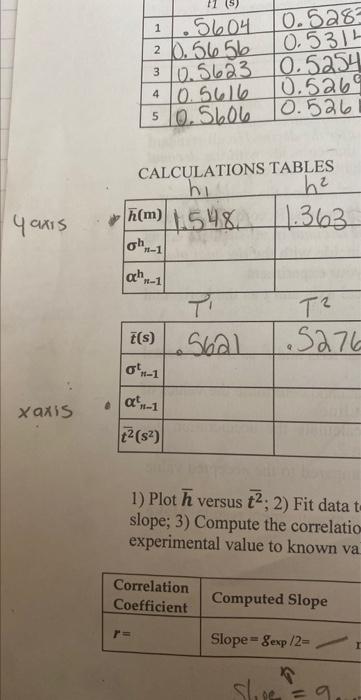 t1 (s)
1 .5604 0.528
2 0.5656 0.531
3 0.5623 0.5254
4 0.5616 0.5269
5 0.5606 0.5261
CALCULATIONS TABLES
h1 h2
y axis h̄(m) 1.548 1.363
σʰn−1
αʰn−1
T1 T2
t̄(s) .5621 .5276
σᵗn−1
x axis αᵗn−1
t̄²(s²)
1) Plot h̄ versus t̄²; 2) Fit data t
slope; 3) Compute the correlatio
experimental value to known va
Correlation Coefficient Computed Slope
r = Slope = gexp /2=
slope = 9.